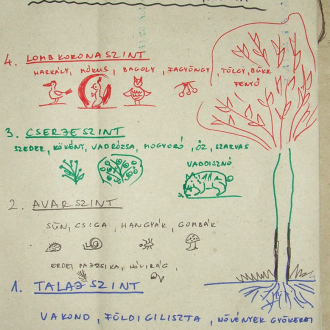 4. LOMBKORONASZINT
HARKÁLY, MÓKUS, BAGOLY, FAGYÖNGY, TÖLGY, BÜKK
FENYŐ
3. CSERJESZINT
SZEDER, KÖKÉNY, VADRÓZSA, MOGYORÓ, ŐZ, SZARVAS
VADDISZNÓ
2. AVARSZINT
SÜN, CSIGA, HANGYÁK, GOMBÁK
ERDEI PAJZSIKA, HÓVIRÁG,
1. TALAJSZINT
VAKOND, FÖLDIGILISZTA, NÖVÉNYEK GYÖKEREI